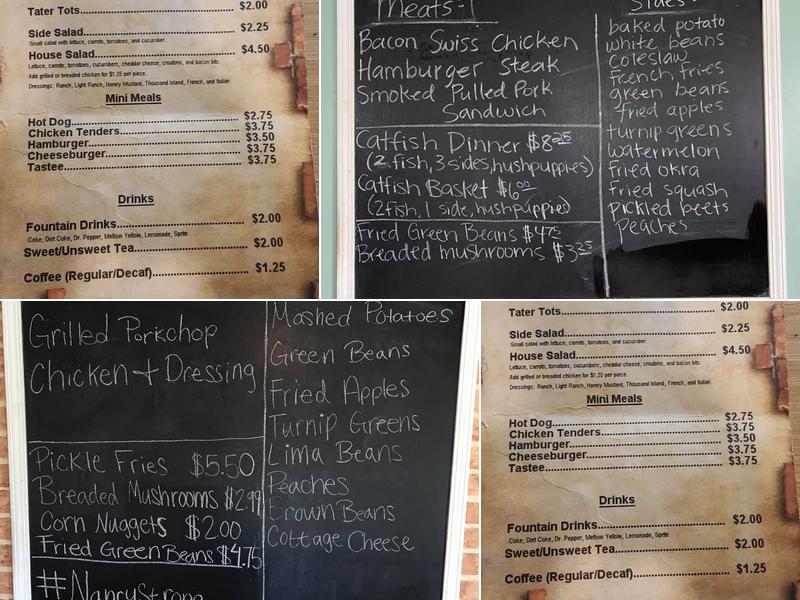 Tater Tots........ $2.00
Side Salad........ $2.25
Small salad with lettuce, carrots, tomatoes, and cucumber.
House Salad........ $4.50
Lettuce, carrots, tomatoes, cucumbers, cheddar cheese, croutons, and bacon bits.
Add grilled or breaded chicken for $1.25 per piece.
Dressings: Ranch, Light Ranch, Honey Mustard, Thousand Island, French, and Italian.
Mini Meals
Hot Dog........ $2.75
Chicken Tenders........ $3.75
Hamburger........ $3.50
Cheeseburger........ $3.75
Tastee........ $3.75
Drinks
Fountain Drinks........ $2.00
Coke, Diet Coke, Dr. Pepper, Mellow Yellow, Lemonade, Sprite
Sweet/Unsweet Tea........ $2.00
Coffee (Regular/Decaf)........ $1.25
Meats:
Bacon Swiss Chicken
Hamburger Steak
Smoked Pulled Pork
Sandwich
Catfish Dinner $8.25
(2 fish, 3 sides, hushpuppies)
Catfish Basket $6.00
(2 fish, 1 side, hushpuppies)
Fried Green Beans $4.75
Breaded mushrooms $3.25
Sides:
baked potato
white beans
coleslaw
french fries
green beans
fried apples
turnip greens
watermelon
fried okra
fried squash
pickled beets
Peaches
Grilled Porkchop
Chicken + Dressing
Pickle Fries $5.50
Breaded Mushrooms $2.99
Corn Nuggets $2.00
Fried Green Beans $4.75
#NancyStrong
Mashed Potatoes
Green Beans
Fried Apples
Turnip Greens
Lima Beans
Peaches
Brown Beans
Cottage Cheese
Tater Tots........ $2.00
Side Salad........ $2.25
Small salad with lettuce, carrots, tomatoes, and cucumber.
House Salad........ $4.50
Lettuce, carrots, tomatoes, cucumbers, cheddar cheese, croutons, and bacon bits.
Add grilled or breaded chicken for $1.25 per piece.
Dressings: Ranch, Light Ranch, Honey Mustard, Thousand Island, French, and Italian.
Mini Meals
Hot Dog........ $2.75
Chicken Tenders........ $3.75
Hamburger........ $3.50
Cheeseburger........ $3.75
Tastee........ $3.75
Drinks
Fountain Drinks........ $2.00
Coke, Diet Coke, Dr. Pepper, Mellow Yellow, Lemonade, Sprite
Sweet/Unsweet Tea........ $2.00
Coffee (Regular/Decaf)........ $1.25